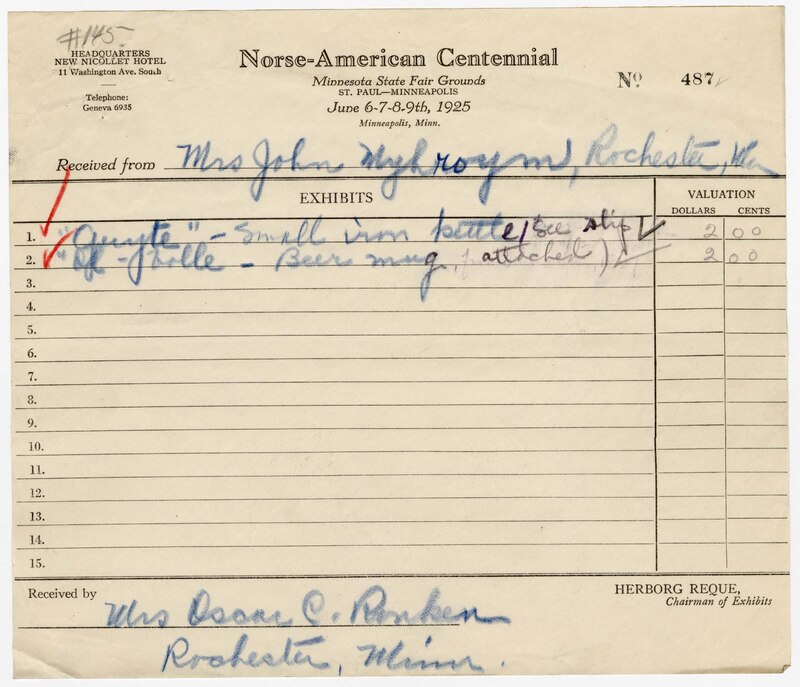 #145
HEADQUARTERS
NEW NICOLLET HOTEL
11 Washington Ave. South
Telephone:
Geneva 6935
Norse-American Centennial
Minnesota State Fair Grounds
ST. PAUL—MINNEAPOLIS
June 6-7-8-9th, 1925
Minneapolis, Minn.
No 487
Received from Mrs John Rochester, Minn
EXHIBITS
VALUATION
DOLLARS CENTS
1. "Gryte" - Small iron kettle (See slip 2 00
2. "Øl - bolle - Beer mug, attached) 2 00
3.
4.
5.
6.
7.
8.
9.
10.
11.
12.
13.
14.
15.
Received by Mrs Oscar C. Ronken
Rochester, Minn.
HERBORG REQUE,
Chairman of Exhibits